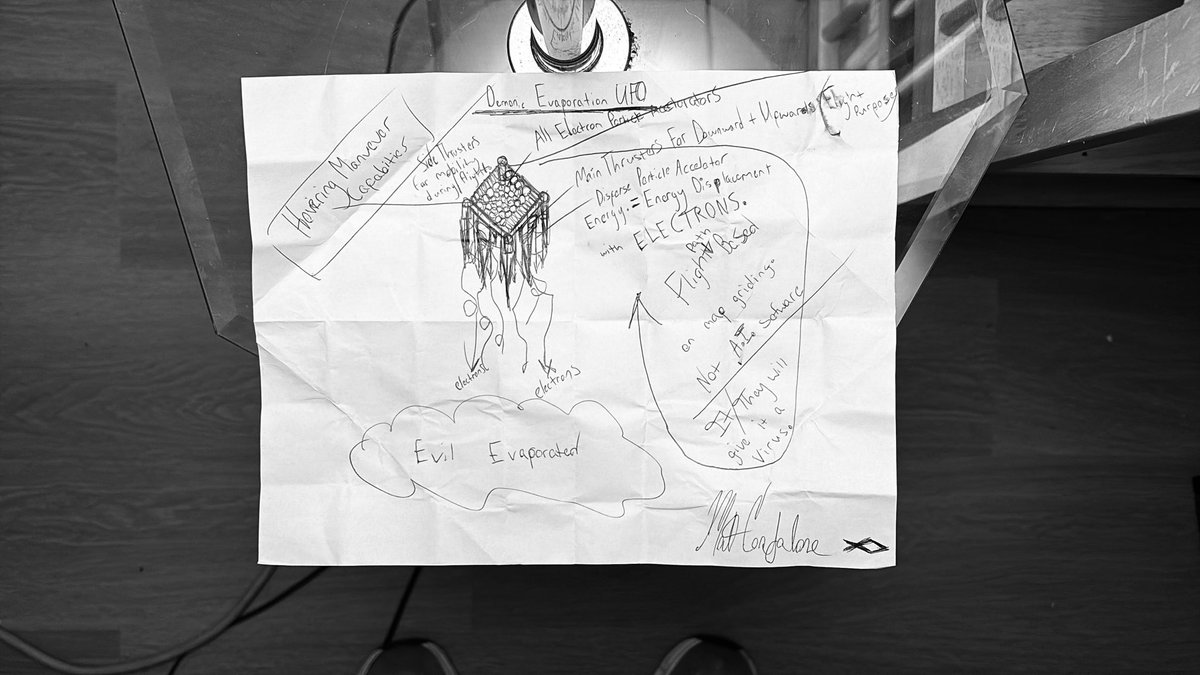 Demonic Evaporation UFO
All Electron Particle
Hovering Manuevor
Capabilities
Side Thrusters
for mobility
during flight
Main Thrusters For Downward + Upwards Flight
Purposes
Disperse Particle Accelator
Energy. = Energy Displacement
with ELECTRONS.
Flight Path Based
on map griding.
Not A.I. Software
They will
give it a
Virus.
electrons
electrons
Evil Evaporated